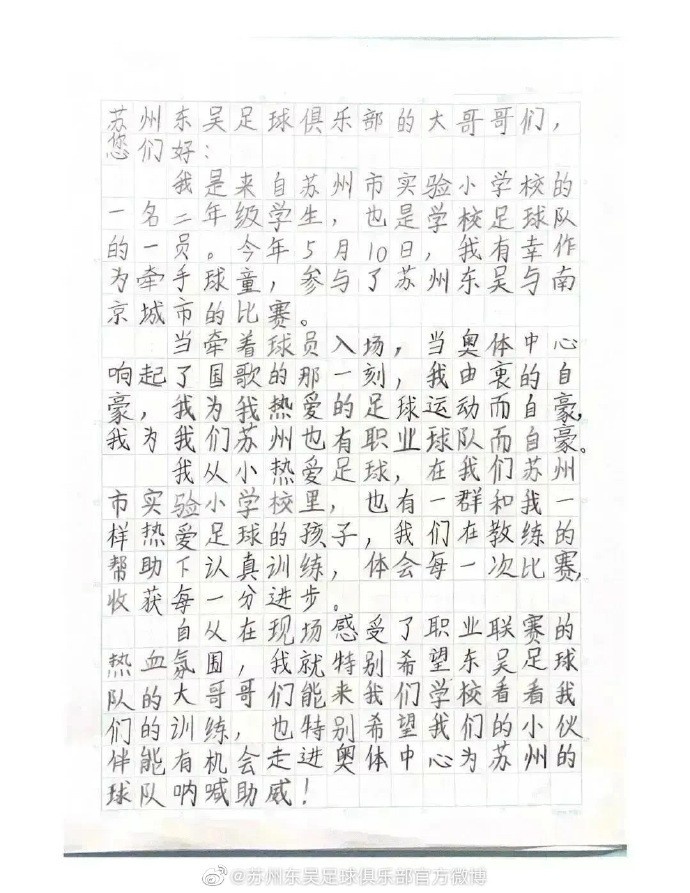 苏州东吴足球俱乐部的大哥哥们，
您们好：
我是来自苏州市实验小学校的
一名二年级学生，也是学校足球队
的一员。今年5月10日，我有幸作
为牵手球童，参与了苏州东吴与南
京城市的比赛。
当牵着球员入场，当奥体中心
响起了国歌的那一刻，我由衷的自
豪，我为我热爱的足球运动而自豪，
我为我们苏州也有职业球队而自豪。
我从小热爱足球，在我们苏州
市实验小学校里，也有一群和我一
样热爱足球的孩子，我们在教练的
帮助下认真训练，体会每一次比赛，
收获每一分进步。
自从在现场感受了职业联赛的
热血氛围，我就特别希望东吴足球
队的大哥哥们能来我们学校看看我
们的训练，也特别希望我们的小伙
伴能有机会走进奥体中心为苏州的
球队呐喊助威！
@苏州东吴足球俱乐部官方微博